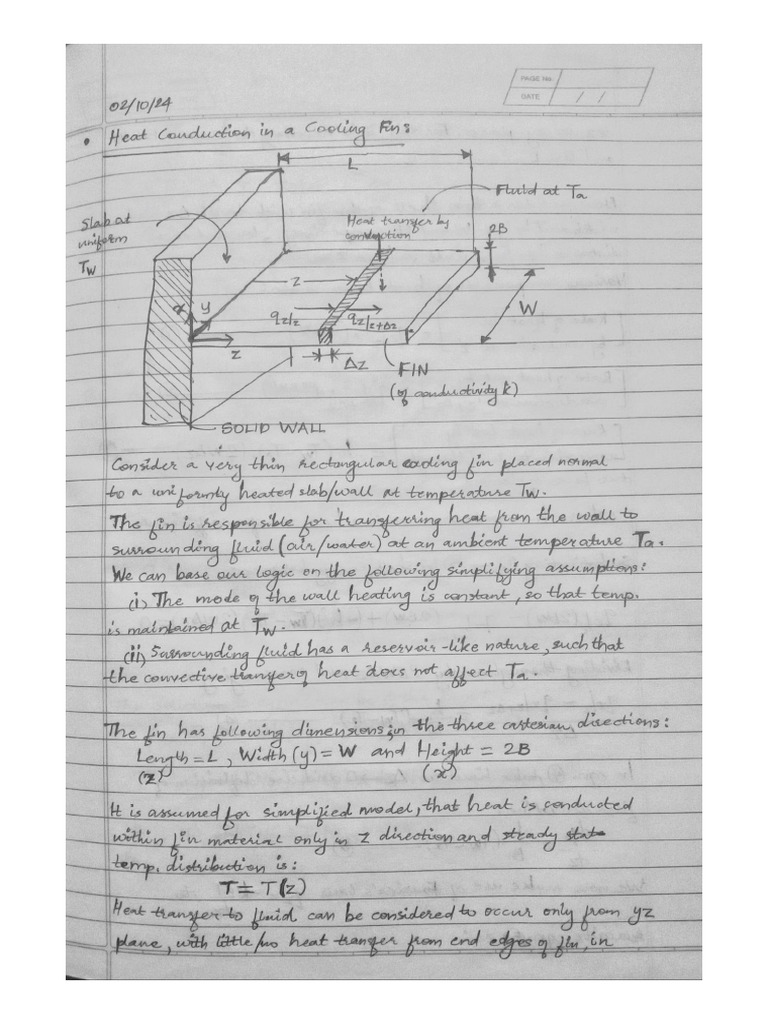 PAGE No.
DATE / /
02/10/24
• Heat Conduction in a Cooling Fin:
L
Fluid at Ta
Slab at
uniform
Tw
Heat transfer by
conduction
2B
z
x
y
qz/z
qz/z+Δz
W
z
Δz
FIN
(of conductivity k)
SOLID WALL
Consider a very thin rectangular cooling fin placed normal
to a uniformly heated slab/wall at temperature Tw.
The fin is responsible for transferring heat from the wall to
surrounding fluid (air/water) at an ambient temperature Ta.
We can base our logic on the following simplifying assumptions:
(i) The mode of the wall heating is constant, so that temp.
is maintained at Tw.
(ii) Surrounding fluid has a reservoir-like nature, such that
the convective transfer of heat does not affect Ta.
The fin has following dimensions in the three cartesian directions:
Length = L, Width (y) = W and Height = 2B
(z) (x)
It is assumed for simplified model, that heat is conducted
within fin material only in z direction and steady state
temp. distribution is:
T = T(z)
Heat transfer to fluid can be considered to occur only from yz
plane, with little/no heat transfer from end edges of fin, in